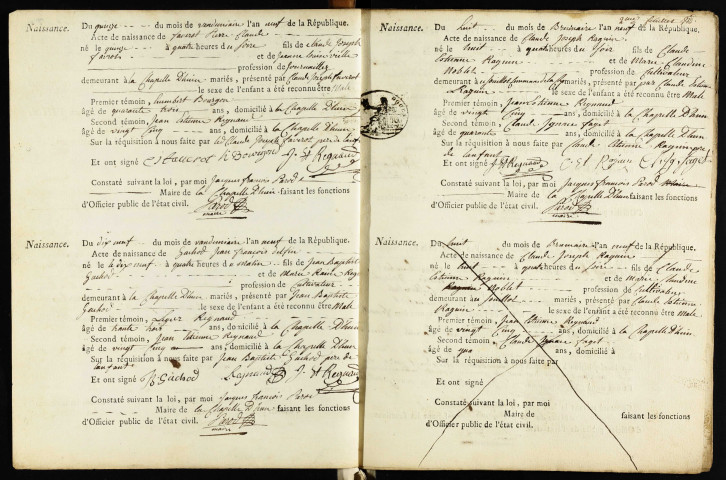 Naissance. Du quinze du mois de vandemiaire l'an neuf de la République.
Acte de naissance de Faivrot Pierre Claude
né le quinze à quatre heures du soire fils de Claude Joseph
Faivrot et de Jeanne
profession de
demeurant à la Chapelle Dhuin mariés, présenté par Claude Joseph Faivrot
le sexe de l'enfant a été reconnu être Male
Premier témoin, humbert Bourgon
âgé de quarante trois ans, domicilié à la Chapelle Dhuin
Second témoin, Jean Etienne Reynaud
âgé de vingt Cinq ans, domicilié à la Chapelle Dhuin
Sur la réquisition à nous faite par Claude Joseph Faivrot pere de
Et ont signé J. St Regnaud
Constaté suivant la loi, par moi Jacques François Parod
Maire de la Chapelle Dhuin faisant les fonctions
d'Officier public de l'état civil. Parod
maire
Naissance. Du dix neuf du mois de vandemiaire l'an neuf de la République.
Acte de naissance de Guichod Jean François
né le dix neuf à quatre heures du matin fils de Jean Baptiste
Guichod et de Marie
profession de Cultivateur
demeurant à la Chapelle Dhuin mariés, présenté par Jean Baptiste
Guichod le sexe de l'enfant a été reconnu être Male
Premier témoin, Reynaud
âgé de trante trois ans, domicilié à la Chapelle Dhuin
Second témoin, Jean Etienne Reynaud
âgé de vingt Cinq ans, domicilié à la Chapelle Dhuin
Sur la réquisition à nous faite par Jean Baptiste Guichod pere de
lanfant
Et ont signé Guichod Reynaud J. St Regnaud
Constaté suivant la loi, par moi Jacques François Parod
Maire de la Chapelle Dhuin faisant les fonctions
d'Officier public de l'état civil. Parod
maire
Naissance. Du huit du mois de Brumaire l'an neuf de la République.
Acte de naissance de Claude Joseph Raguin
né le huit à quatre heures du soir fils de Claude
Etienne Raguin et de Marie Claudine
Noblet profession de Cultivateur
demeurant mariés, présenté par Claude Etienne
Raguin le sexe de l'enfant a été reconnu être Male
Premier témoin, Jean Etienne Reynaud
âgé de vingt Cinq ans, domicilié à la Chapelle Dhuin
Second témoin, Claude Faget
âgé de quarante ans, domicilié à la Chapelle Dhuin
Sur la réquisition à nous faite par Claude Etienne Raguin pere
de lanfant
Et ont signé J. St Regnaud
Constaté suivant la loi, par moi Jacques François Parod
Maire de la Chapelle Dhuin faisant les fonctions
d'Officier public de l'état civil. Parod
maire
Naissance. Du huit du mois de Brumaire l'an neuf de la République.
Acte de naissance de Claude Joseph Raguin
né le huit à quatre heures du soire fils de Claude
Etienne Raguin et de Marie Claudine
Noblet profession de Cultivateur
demeurant au mariés, présenté par Claude Etienne
Raguin le sexe de l'enfant a été reconnu être Male
Premier témoin, Jean Etienne Reynaud
âgé de vingt Cinq ans, domicilié à la Chapelle Dhuin
Second témoin, Claude Faget
âgé de qua ans, domicilié à
Sur la réquisition à nous faite par
Et ont signé
Constaté suivant la loi, par moi
Maire de faisant les fonctions
d'Officier public de l'état civil.